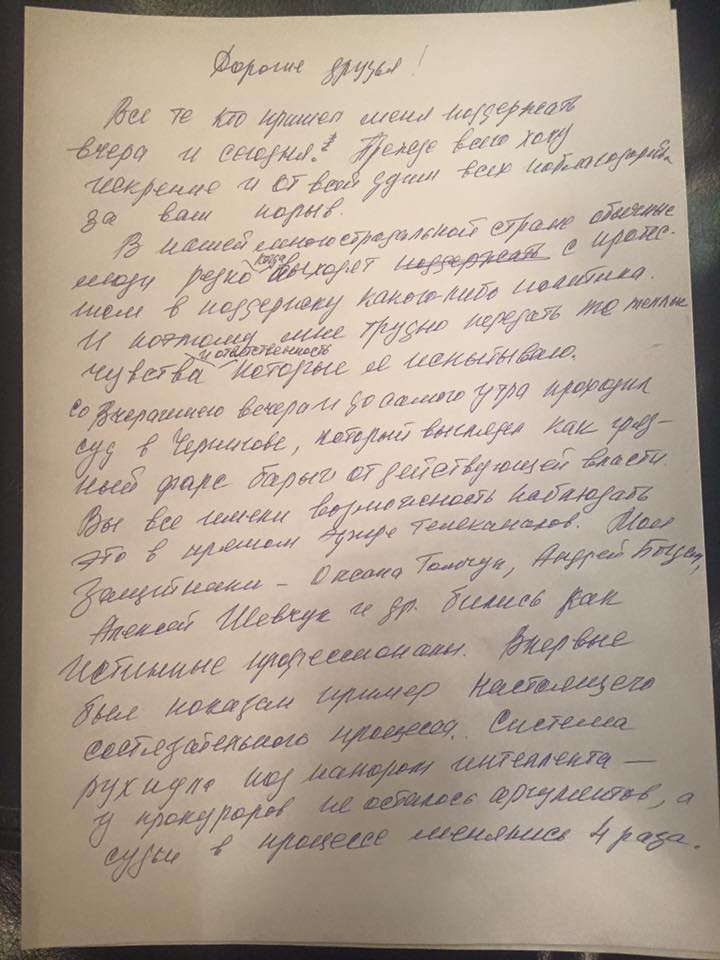 Дорогие друзья!
Все те кто пришел меня поддержать
вчера и сегодня. Прежде всего хочу
искренне и от всей души всех поблагодарить
за ваш порыв.
В нашей многострадальной стране обычные
люди редко когда выходят поддержать с протес-
том в поддержку какого-либо политика.
И поэтому мне трудно передать те теплые
чувства и ответственность которые я испытываю.
Со вчерашнего вечера и до самого утра проходил
суд в Чернигове, который выглядел как гряз-
ный фарс барыг от действующей власти.
Вы все имели возможность наблюдать
это в прямом эфире телеканалов. Мои
защитники – Оксана Томчук, Андрей
Алексей Шевчук и др. бились как
истинные профессионалы. Впервые
был показан пример настоящего
состязательного процесса. Система
рухнула под напором интеллекта –
у прокуроров не осталось аргументов, а
судьи в процессе менялись 4 раза.